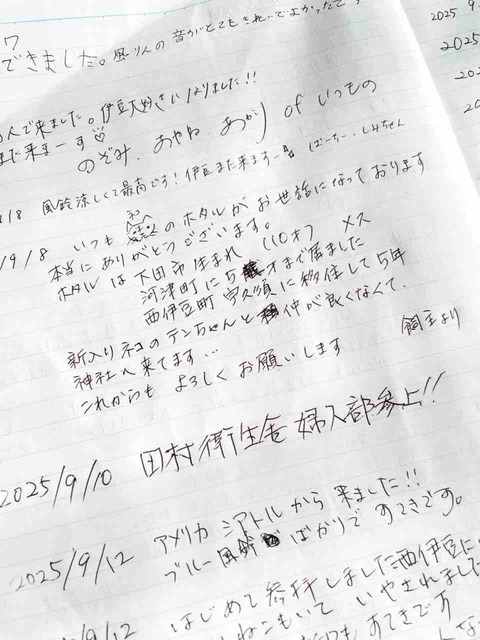 7
できました。風りんの音がとてもきれいでよかったです
2025 9.
2025
202
20
人で来ました。伊豆大好きになりました!!
また来まーす♡
のぞみ、あやね、あかり of いつもの
8/8 風鈴涼しくて最高です!伊豆また来ますー
9/8 いつも ネコ のホタルがお世話になっております
本当にありがとうございます。
ホタルは下田市生まれ (10才) メス
河津町に5才まで居ました
西伊豆町宇久須に移住して5年
新入りネコのテンちゃんと仲が良くなくて、
神社へ来てます…
これからも よろしくお願いします 飼主より
2025/9/10 田村衛生舎 婦人部参上!!
2025/9/12 アメリカ シアトルから来ました!!
ブルー風鈴ばかりですてきです。
9/12 はじめて参拝しました西伊豆に
ねこもいて いやされました
すてきです